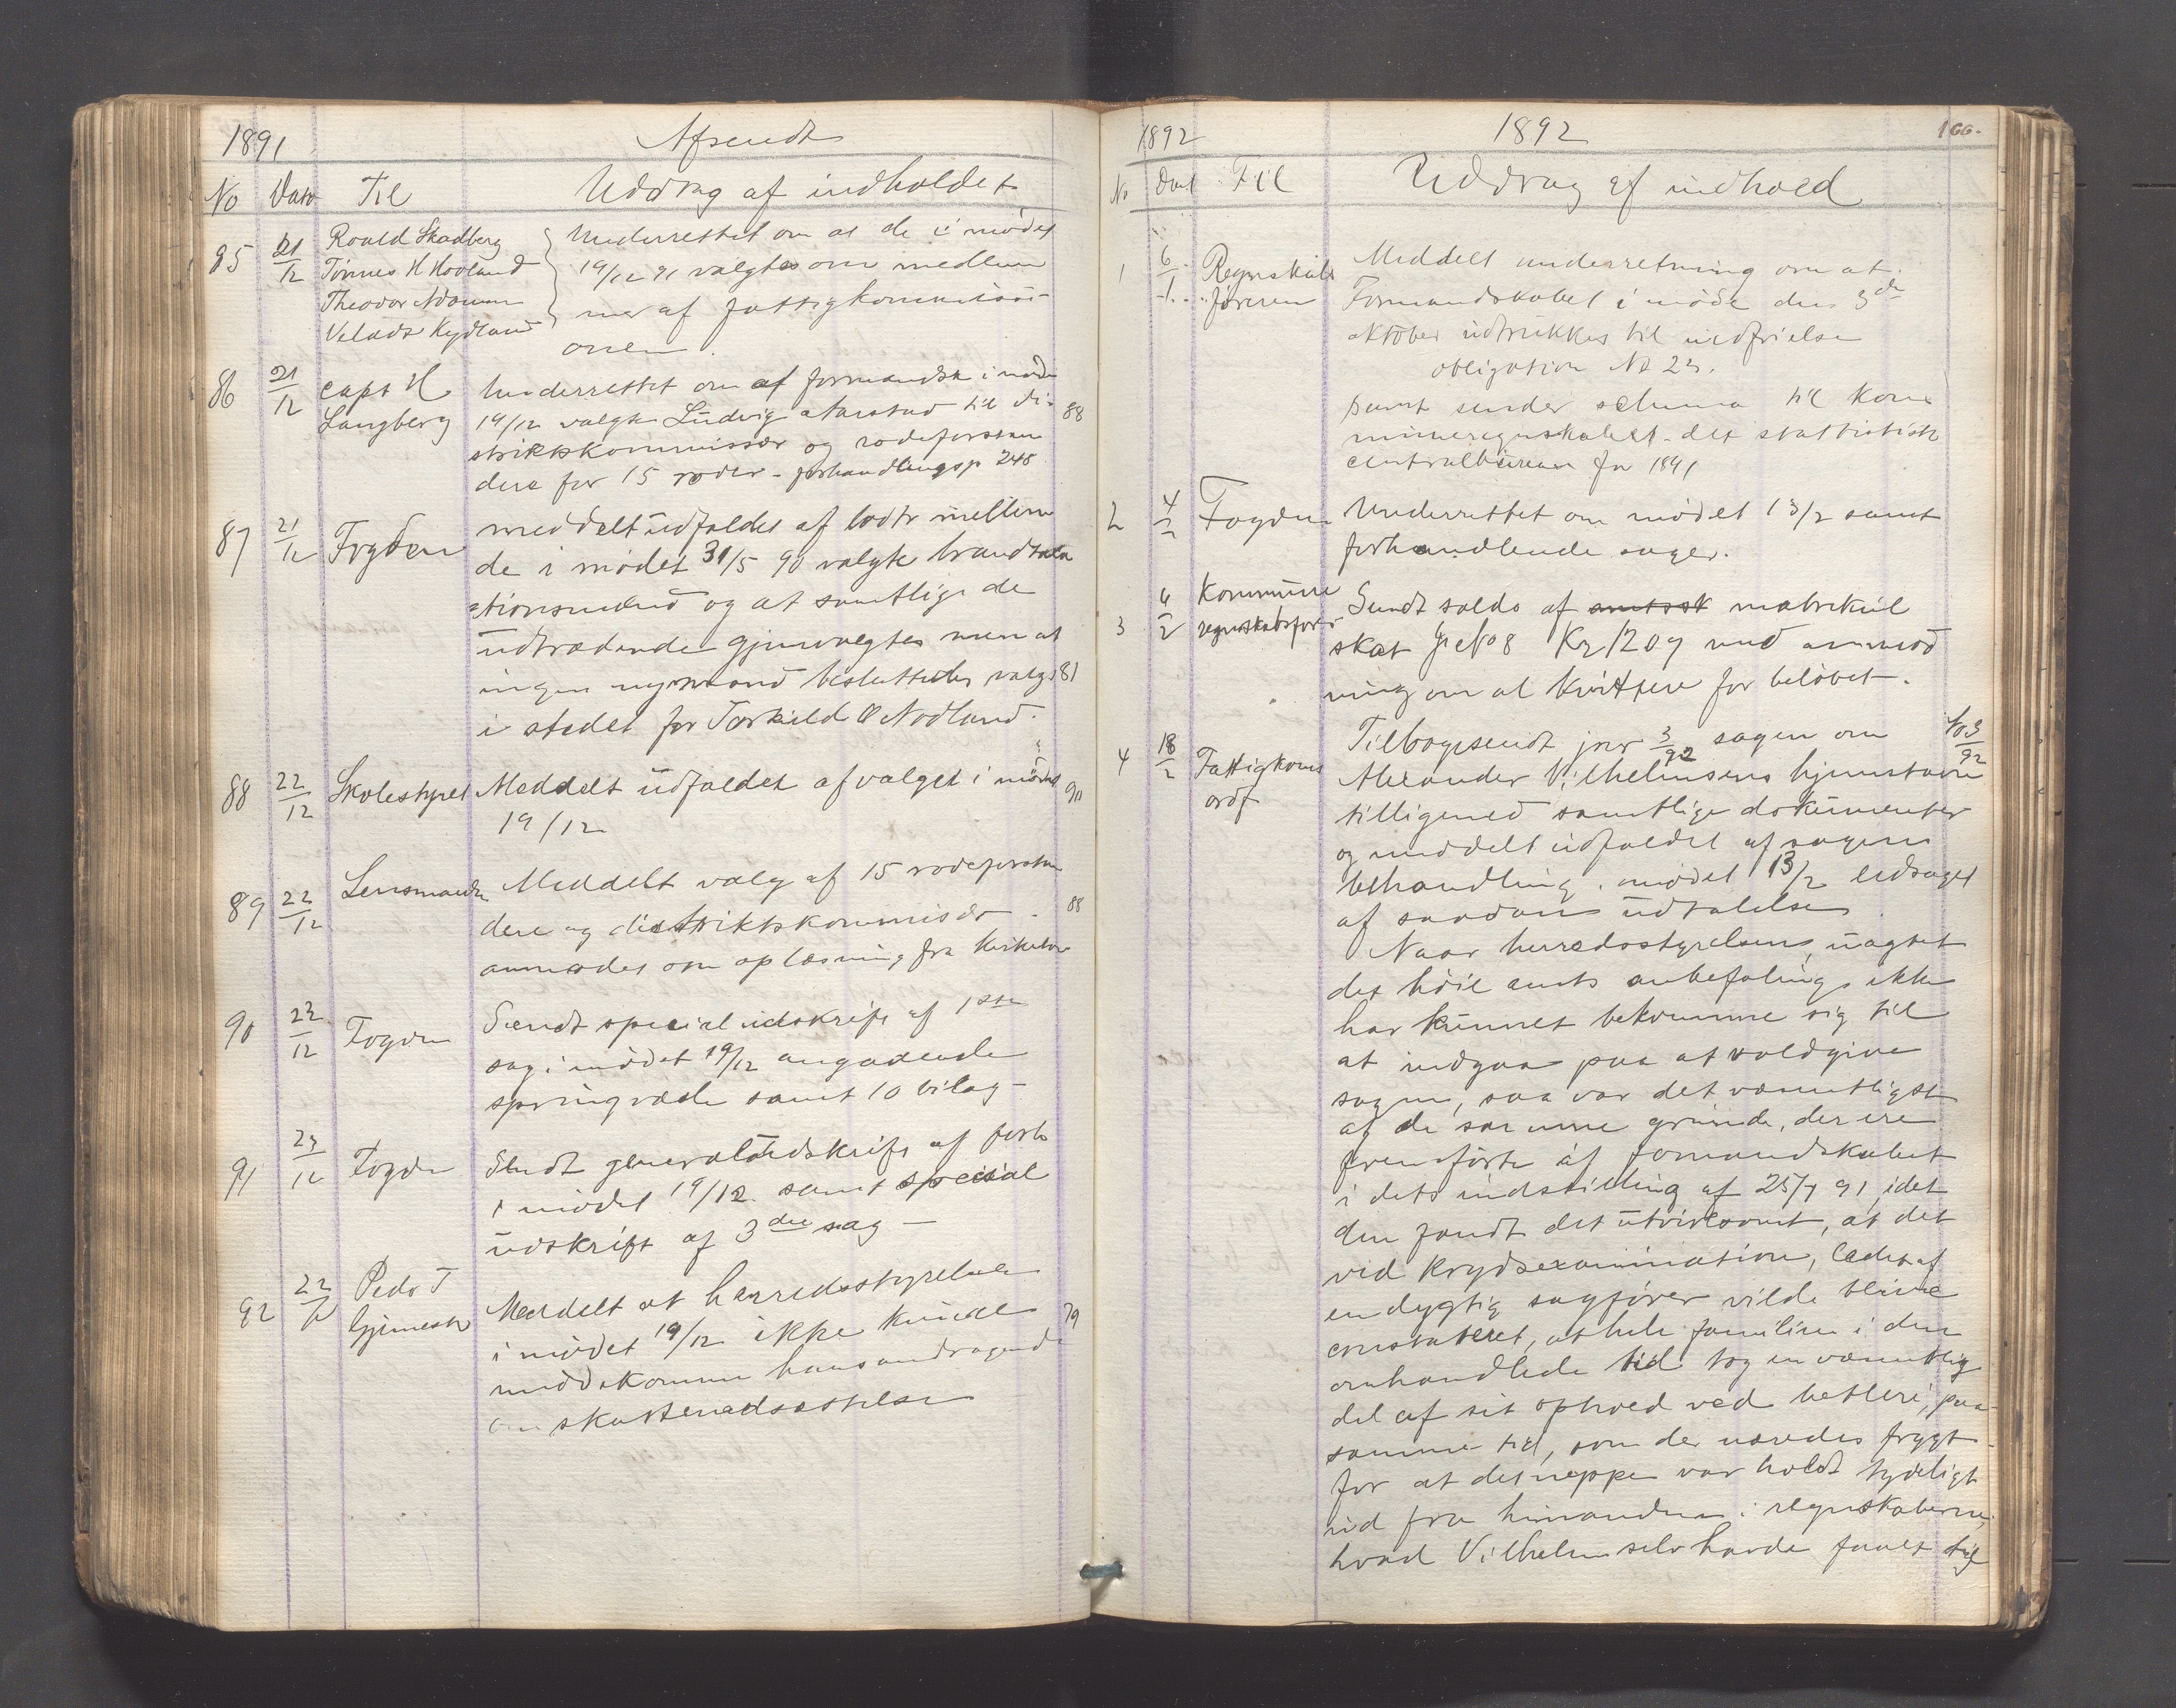 1891 Afsendt
No Dato Til Uddrag af indholdet
85 21/12 Roald Skadberg Underrettet om at de i mødet
Tønnes H Hovland 19/12 91 valgtes om medlem
Theodor Adamsen mer af fattigkommissi
Veladt Kydland onen.
86 21/12 Capt H Underrettet om at formandsk i møde
Langberg 19/12 valgte Ludvig Aarstad til di- 88
striktskommissær og rodeforstan
dere for 15 roder - forhandlingsp 248
87 21/12 Fogden meddelt udfaldet af lodtr mellem
de i mødet 31/5 90 valgte brandtaxa
tionsmænd og at samtlige de
udtrædende gjenvalgtes men at
ingen ny mand besluttedes valgt 81
i stedet for Torkild O Nodland.
88 22/12 Skolestyret Meddelt udfaldet af valget i mødet 90
19/12
89 22/12 Lensmanden Meddelt valg af 15 rodeforstan
dere og distriktskommisær - 88
anmodet om oplæsning fra kirkebak
90 22/12 Fogden Sendt special udskrift af 1ste
sag i mødet 19/12 angaaende
springvæde samt 10 bilag -
91 23/12 Fogden Sendt generaludskrift af forh
i mødet 19/12 samt special
udskrift af 3die sag -
92 22/12 Peder T Meddelt at herredsstyrelsen
Gjermestad i mødet 19/12 ikke kunde 79
imødekomme hans andragende
om skattenedsættelse
1892 1892 166.
No Dat Til Uddrag af indhold
1 6/1 Regnskabs Meddelt underretning om at
føreren Formandskabet i møde den 3de
oktober udtrukkes til indfrielse
obligation No 23.
samt sender schema til kom
muneregnskabet - det stattistisk
centralbureau for 1891
2 4/2 Fogden Underrettet om mødet 13/2 samt
forhandlende sager.
3 6/2 Kommune Sendt saldo af amtssk matrikul
regnskabsfør skat No 8 Kr 1209 med anmod
ning om at kvittere for beløbet.
4 18/2 Fattigkoms Tilbagesendt jnr 3/92 sagen om No 3/92
ordf Alexander Vilhelmsens hjemstavn
tilligemed samtlige dokumenter
og meddelt udfaldet af sagens
behandling i mødet 13/2 ledsaget
af saadan udtalelse
Naar herredsstyrelsen, uagtet
det høie amts anbefaling, ikke
har kunnet bekvemme sig til
at indgaa paa at voldgive
sagen, saa var det væsentligst
af de samme grunde, der ere
fremførte af formandskabet
i dets indstilling af 25/7 91, idet
den fandt det utvivlsomt, at det
ved krydsexamination, ledet af
en dygtig sagfører vilde blive
constateret, at hele familien i den
omhandlede tid tog en væsentlig
del af sit ophold ved betleri, paa
samme tid, som der næredes frygt
for at det neppe var holdt tydeligt
ud fra hinanden i regnskaberne,
hvad Vilhelm selv havde faaet til